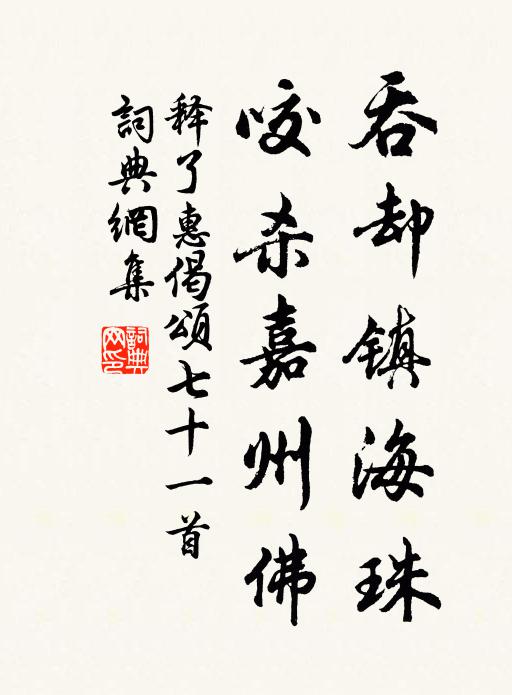 吞却镇海珠
咬杀嘉州佛
释了惠偈颂七十一首
詞典網集
詞典網印